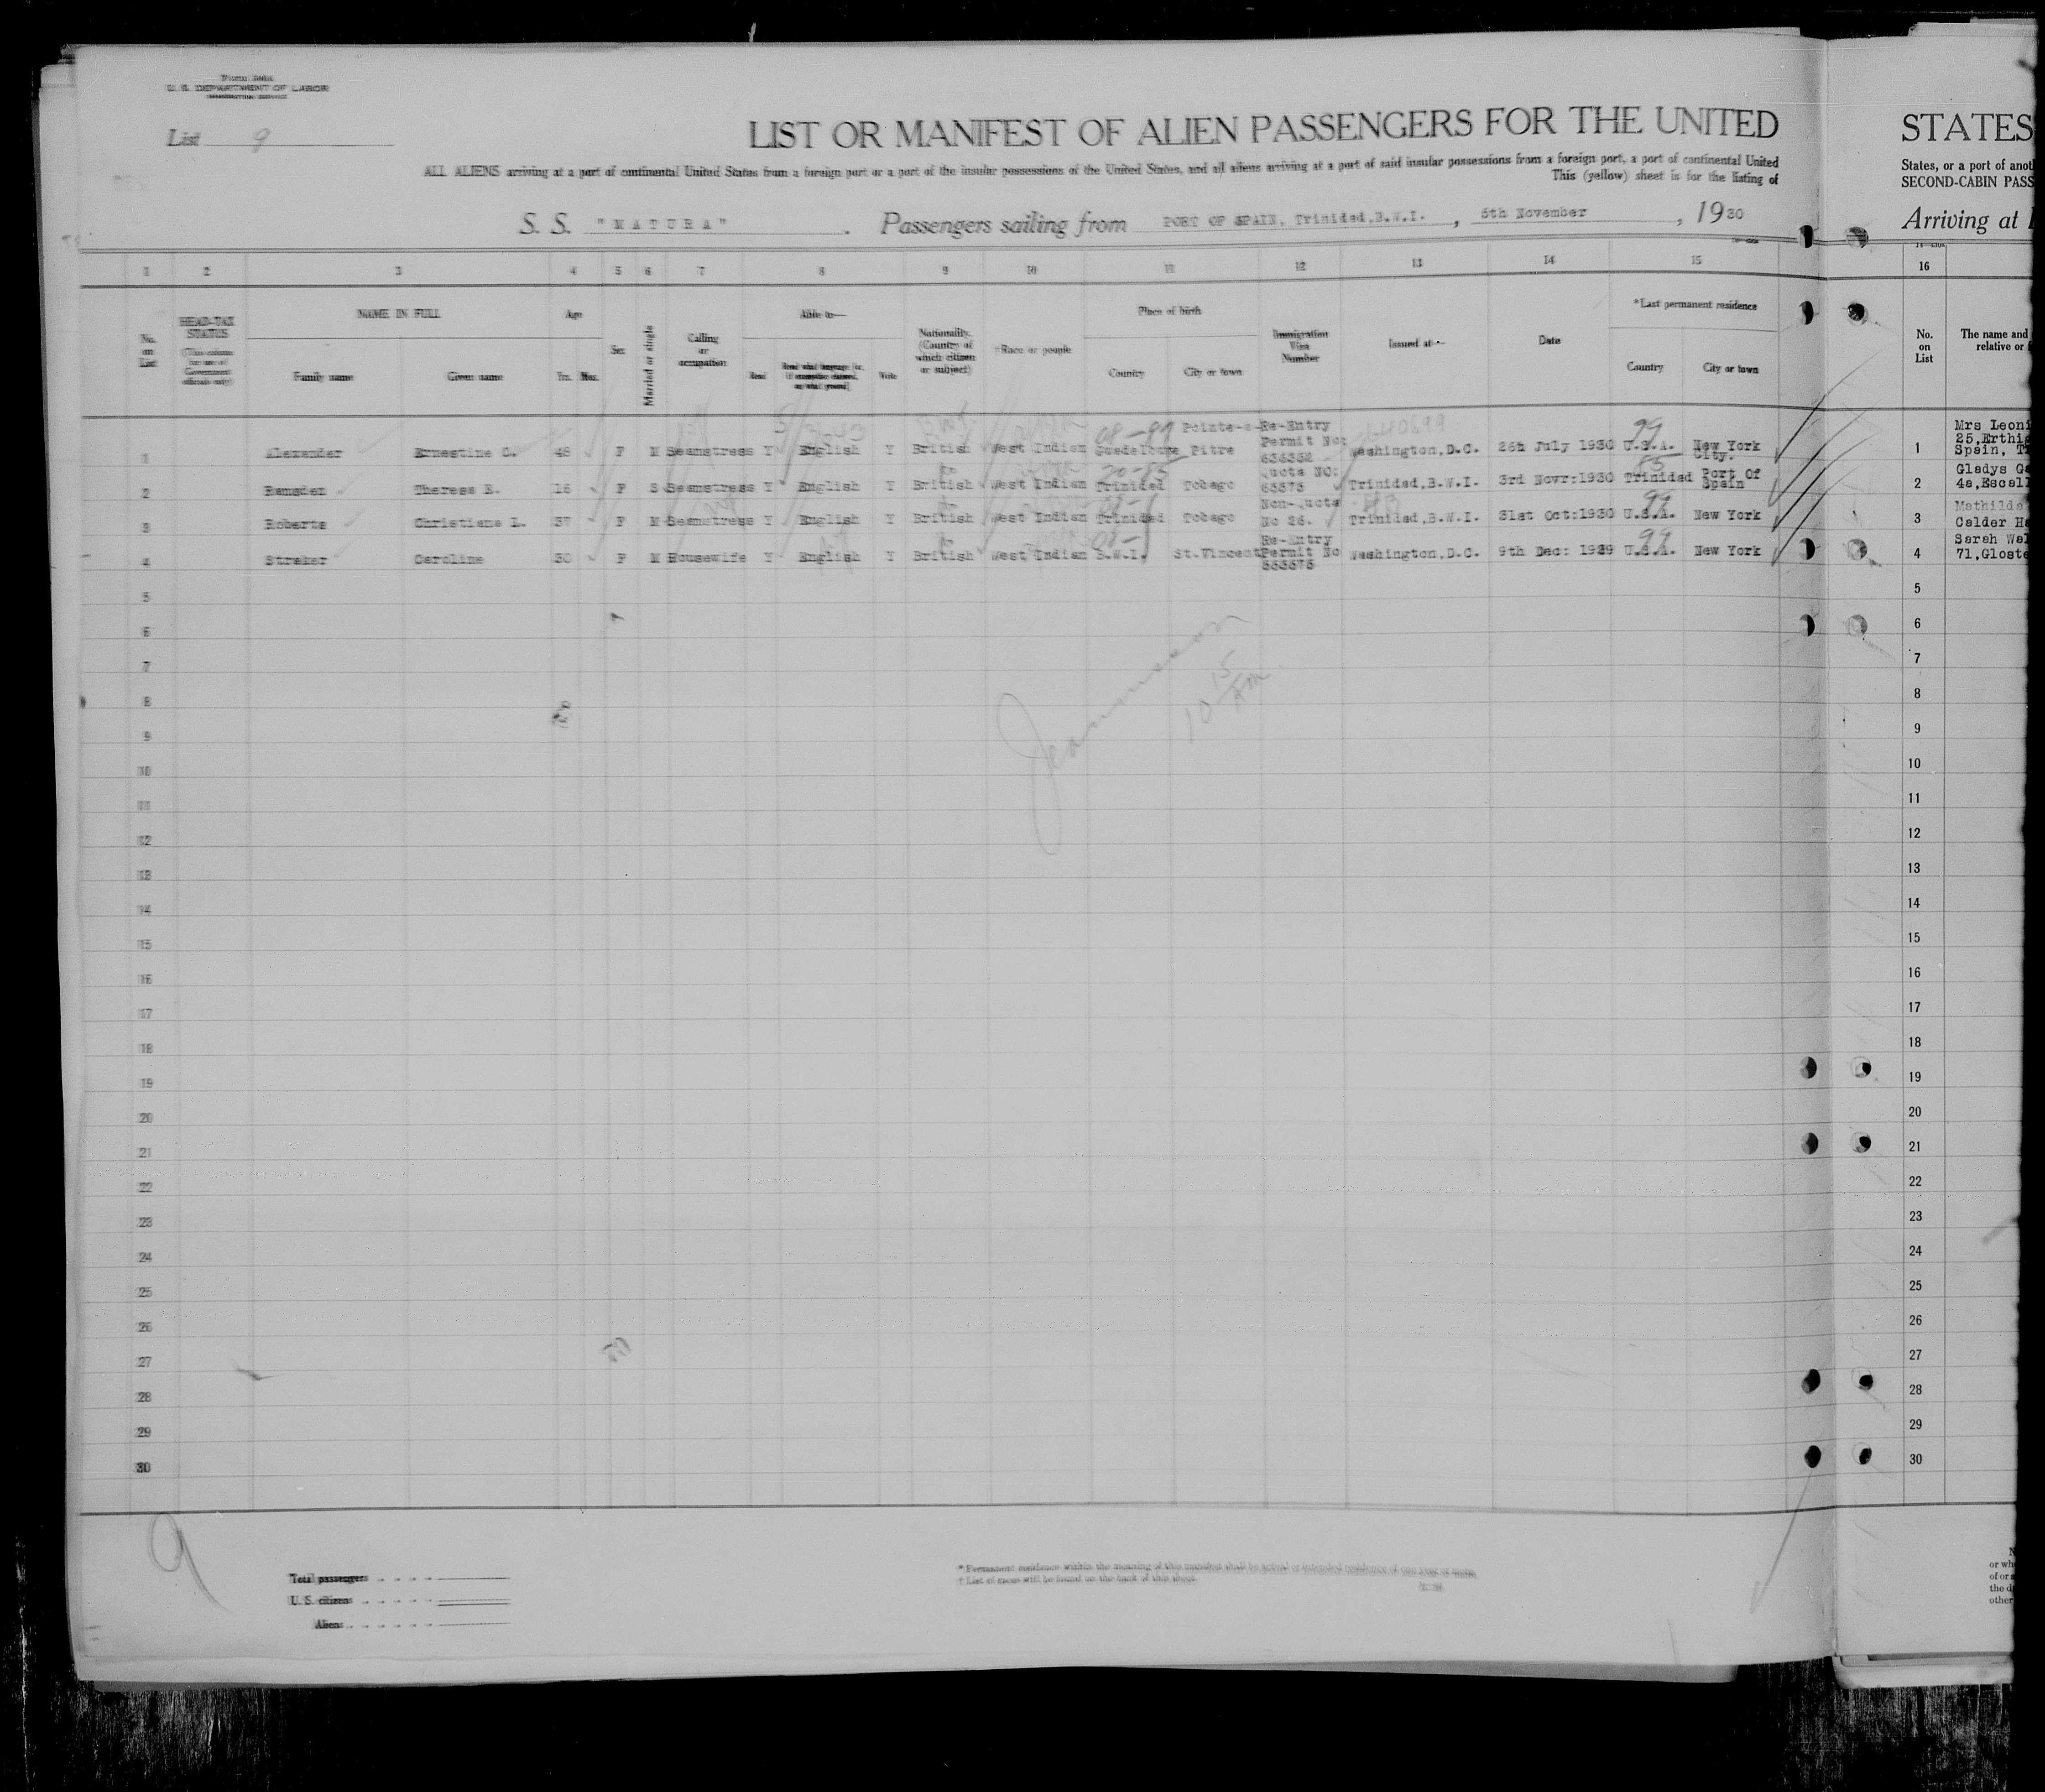 Form 500A
U. S. DEPARTMENT OF LABOR
IMMIGRATION SERVICE
List 9
LIST OR MANIFEST OF ALIEN PASSENGERS FOR THE UNITED
ALL ALIENS arriving at a port of continental United States from a foreign port or a port of the insular possessions of the United States, and all aliens arriving at a port of said insular possessions from a foreign port, a port of continental United
This (yellow) sheet is for the listing of
S. S. "MATURA". Passengers sailing from PORT OF SPAIN, Trinidad,B.W.I., 5th November, 1930
1 2 3 4 5 6 7 8 9 10 11 12 13 14 15
No. on List
HEAD-TAX STATUS
(This column for use of Government officials only)
NAME IN FULL
Family name Given name
Age
Yrs. Mos.
Sex
Married or single
Calling or occupation
Able to—
Read Read what language [or, if exemption claimed, on what ground] Write
Nationality. (Country of which citizen or subject)
†Race or people
Place of birth
Country City or town
Immigration Visa Number
Issued at—
Date
*Last permanent residence
Country City or town
1 Alexander Ernestine C. 48 F M Seamstress Y English Y British West Indian Guadeloupe Pointe-a-Pitre Re-Entry Permit No: 636352 Washington,D.C. 26th July 1930 U.S.A. New York City.
2 Ramsden Theresa E. 16 F S Seamstress Y English Y British West Indian Trinidad Tobago Quota NO: 63575 Trinidad,B.W.I. 3rd Novr:1930 Trinidad Port Of Spain
3 Roberts Christiana L. 37 F M Seamstress Y English Y British West Indian Trinidad Tobago Non-Quota No 26. Trinidad,B.W.I. 31st Oct:1930 U.S.A. New York
4 Straker Caroline 30 F M Housewife Y English Y British West Indian B.W.I. St.Vincent Re-Entry Permit No 553575 Washington,D.C. 9th Dec: 1929 U.S.A. New York
5
6
7
8
9
10
11
12
13
14
15
16
17
18
19
20
21
22
23
24
25
26
27
28
29
30
10 15 AM
9
Total passengers
U. S. citizens
Aliens
* Permanent residence within the meaning of this manifest shall be actual or intended residence of one year or more.
† List of races will be found on the back of this sheet.
STATES
States, or a port of anot
SECOND-CABIN PASS
Arriving at
16
No. on List
The name and
relative or
1 Mrs Leoni
25,Erthi
Spain, T
2 Gladys G
4a,Escall
3 Mathilda
Calder Ha
4 Sarah Wal
71,Gloste
5
6
7
8
9
10
11
12
13
14
15
16
17
18
19
20
21
22
23
24
25
26
27
28
29
30
or wh
of or a
the d
other